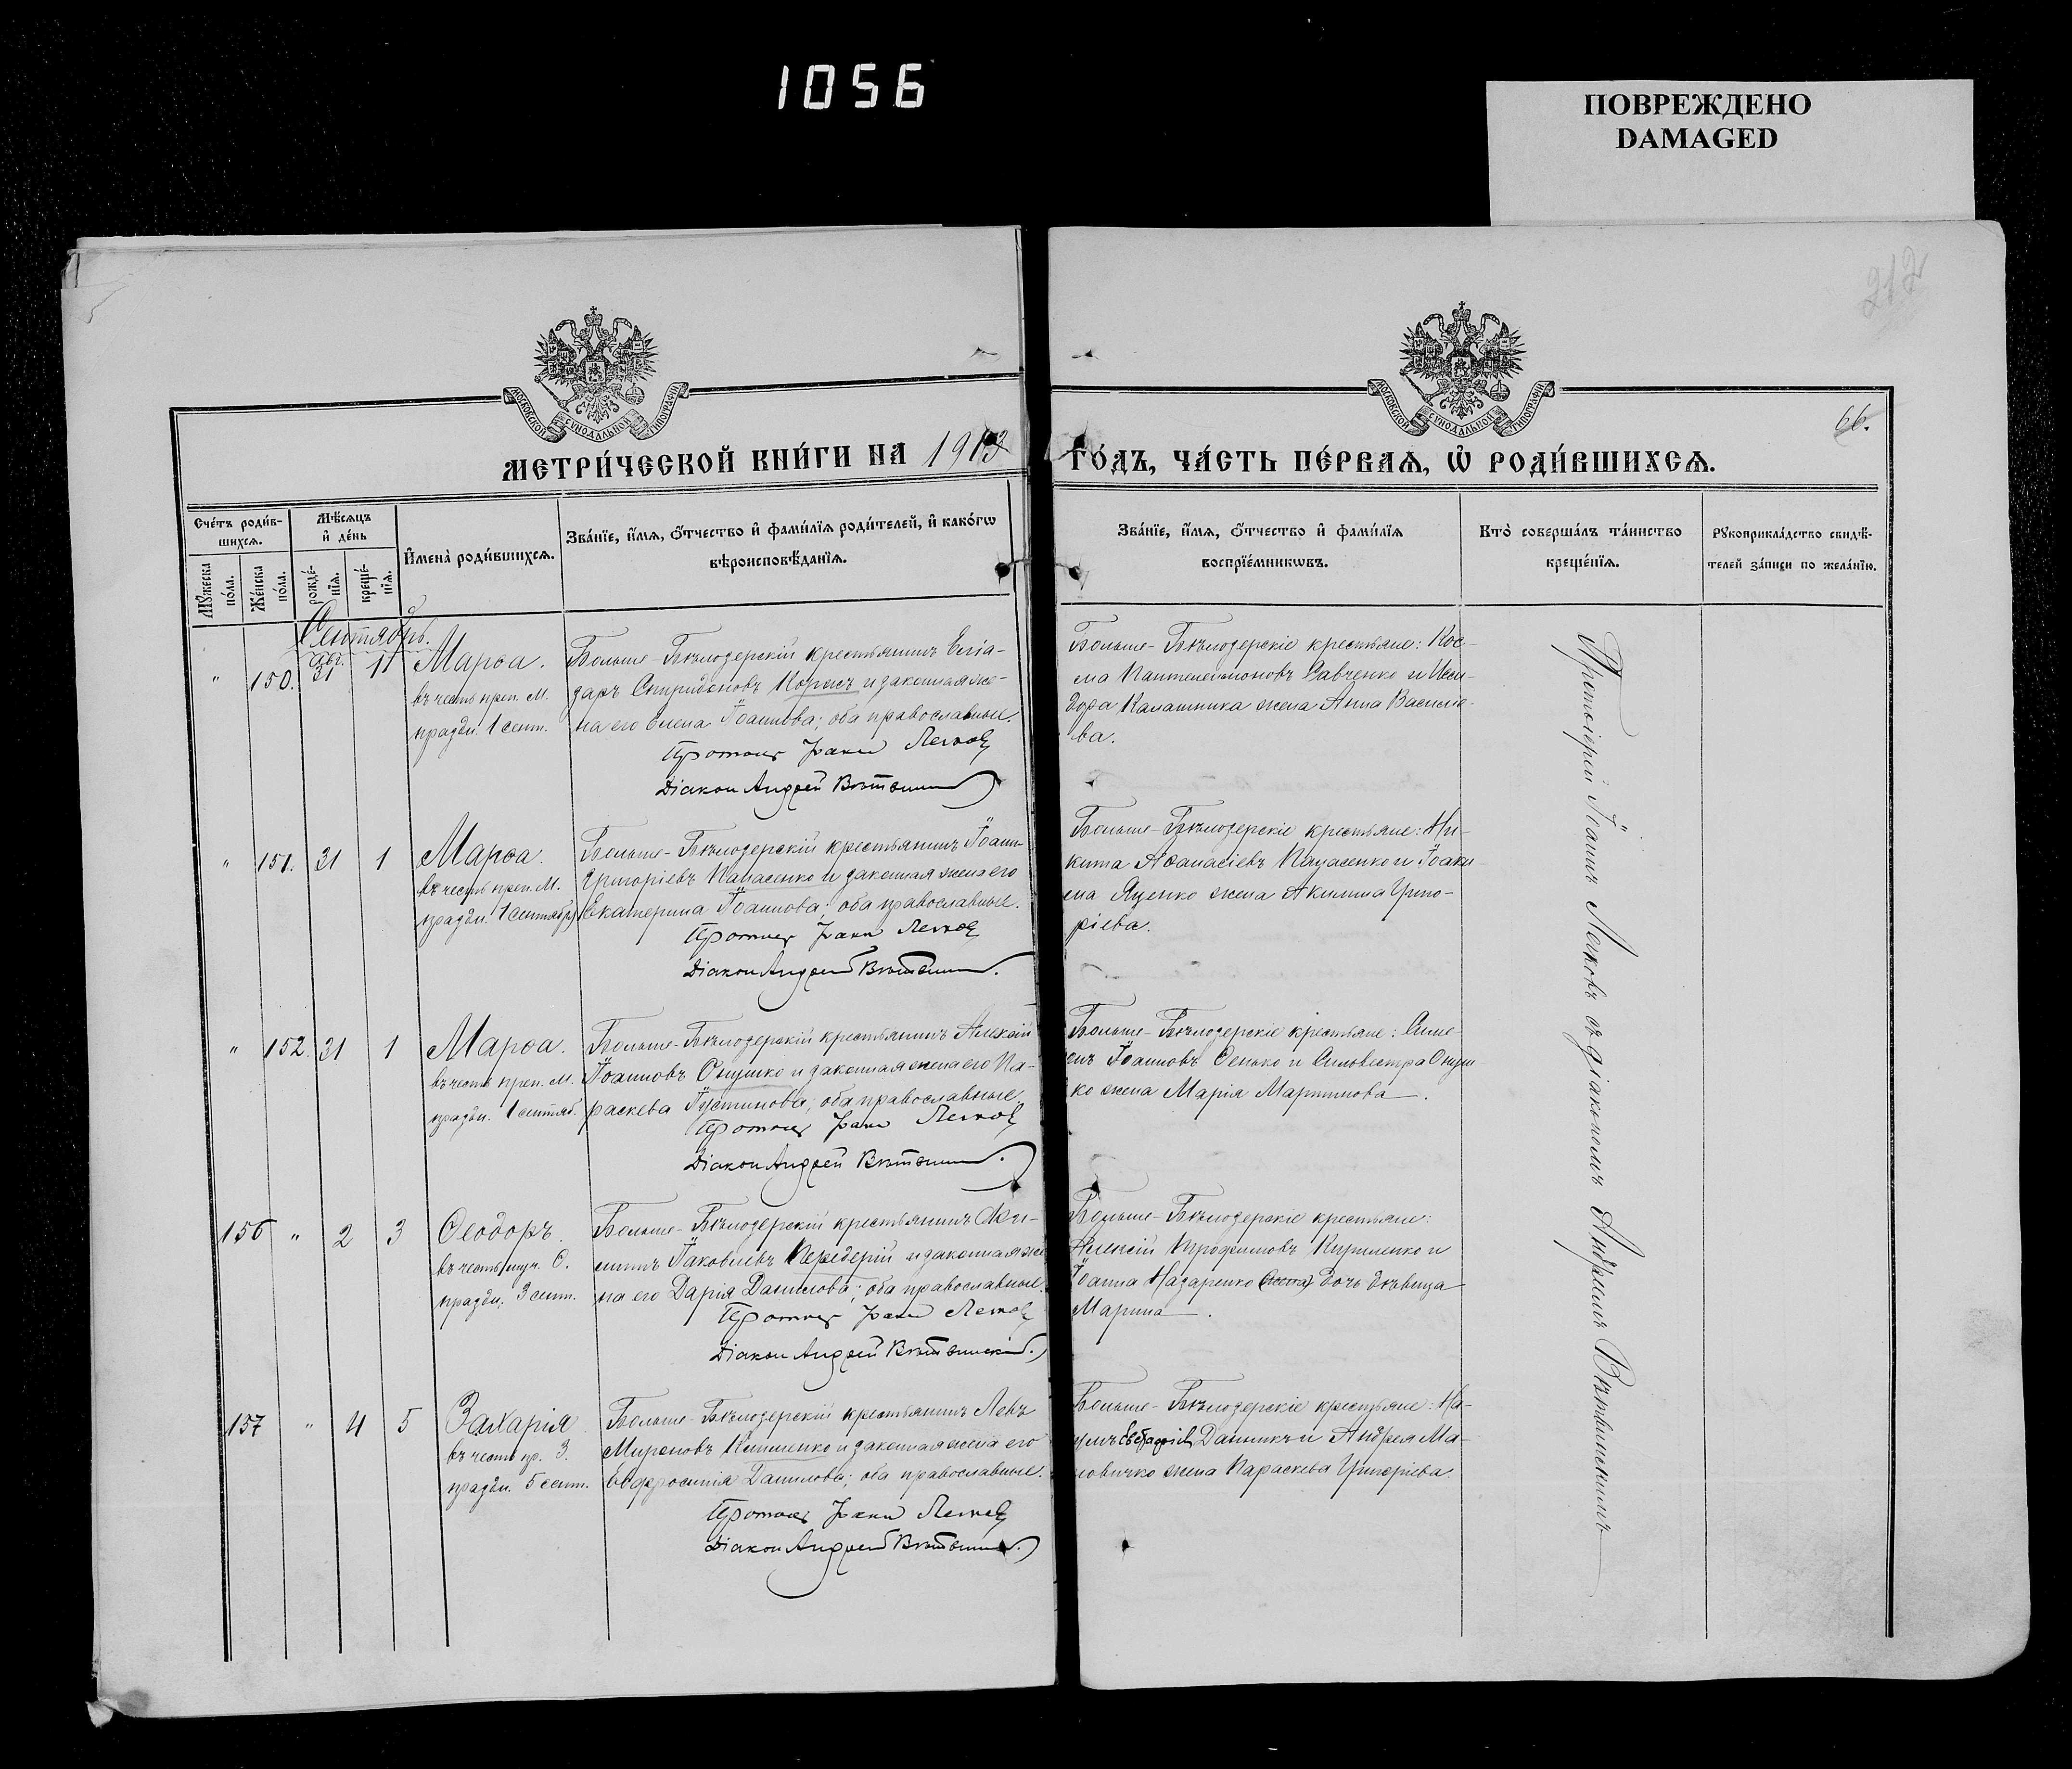 1056
ПОВРЕЖДЕНО
DAMAGED
212
66.
МЕТРИ́ЧЕСКОЙ КНИ́ГИ НА 1913
ГО́ДЪ, ЧА́СТЬ ПЕ́РВАѦ, Ѽ РОДИ́ВШИХСѦ.
Сче́тъ роди́в-
шихсѧ.
Мѣ́сѧцъ
и҆ де́нь
Мꙋ́жеска
по́ла.
Же́нска
по́ла.
рожде́-
нїѧ.
креще́-
нїѧ.
И҆мена̀ роди́вшихсѧ.
Зва́нїе, и҆́мѧ, ѻ҆́тчество и҆ фами́лїѧ роди́телей, и҆ како́гѡ
вѣроисповѣ́данїѧ.
Зва́нїе, и҆́мѧ, ѻ҆́тчество и҆ фами́лїѧ
воспрїе́мникѡвъ.
Кто̀ соверша́лъ та́инство
креще́нїѧ.
Рꙋкоприкла́дство свидѣ́-
телей за́писи по жела́нїю.
Сентябрь.
" 150. Авг. 31 1 Марѳа.
въ честь преп. М.
праздн. 1 сент.
Больше-Бѣлозерскій крестьянинъ
Спиридоновъ и законная же-
на его Елена Іоаннова; оба православные.
Протоіер Іоанн Легков
Діакон Андрей Вѣтвинскій
Больше-Бѣлозерскіе крестьяне: Кос-
ма Пантелеимоновъ Савченко и Иси-
дора Калашника жена Анна Василіе-
ва.
" 151. 31 1 Марѳа.
въ честь преп. М.
праздн. 1 сентября
Больше-Бѣлозерскій крестьянинъ Іоаннъ
Григоріевъ Папасенко и законная жена его
Екатерина Іоаннова; оба православные.
Протоіер Іоанн Легков
Діакон Андрей Вѣтвинскій.
Больше-Бѣлозерскіе крестьяне: Ни-
кита Аѳанасіевъ Папасенко и Іоаки-
ма Яценко жена Акилина Григо-
ріева.
" 152. 31 1 Марѳа.
въ честь преп. М.
праздн. 1 сентяб.
Больше-Бѣлозерскій крестьянинъ Алексій
Іоанновъ Онушко и законная жена его Па-
раскева Іустинова; оба православные.
Протоіер Іоанн Легков
Діакон Андрей Вѣтвинскій.
Больше-Бѣлозерскіе крестьяне: Симе-
онъ Іоанновъ Сенько и Сильвестра Онуш-
ко жена Марія Мартинова.
156 " 2 3 Ѳеодоръ.
въ честь муч. Ѳ.
праздн. 3 сент.
Больше-Бѣлозерскій крестьянинъ
Іаковлевъ Передерій и законная же-
на его Дарія Данилова; оба православные.
Протоіер Іоанн Легков
Діакон Андрей Вѣтвинскій.
Больше-Бѣлозерскіе крестьяне:
Алексій Трофимовъ Кириленко и
Іоанна Назаренко дочь дѣвица
Марина.
157 " 4 5 Захарія.
въ честь пр. З.
праздн. 5 сент.
Больше-Бѣлозерскій крестьянинъ Левъ
Мироновъ и законная жена его
Евфросинія Данилова; оба православные.
Протоіер Іоанн Легков
Діакон Андрей Вѣтвинскій.
Больше-Бѣлозерскіе крестьяне: На-
умъ Евстафіевъ Данникъ и Андрея Ма-
новичко жена Параскева Григоріева.
Протоіерей Іоаннъ Легковъ съ діакономъ Андреемъ Вѣтвинскимъ